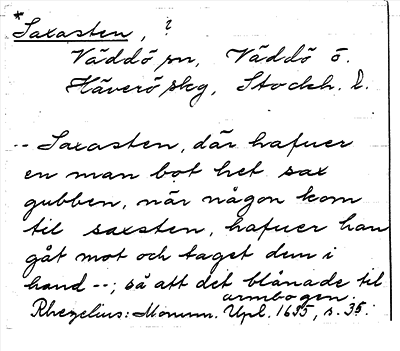 *Saxasten, ?
Väddö sn, Väddö ö.
Häverö skg, Stockh. l.
-- Saxasten, där hafuer
en man bot het sax
gubben, när någon kom
til saxsten, hafuer han
gåt mot och taget dem i
hand --; så att det blånade til
armbogen.
Rhezelius: Monum. Upl. 1635, s. 35.